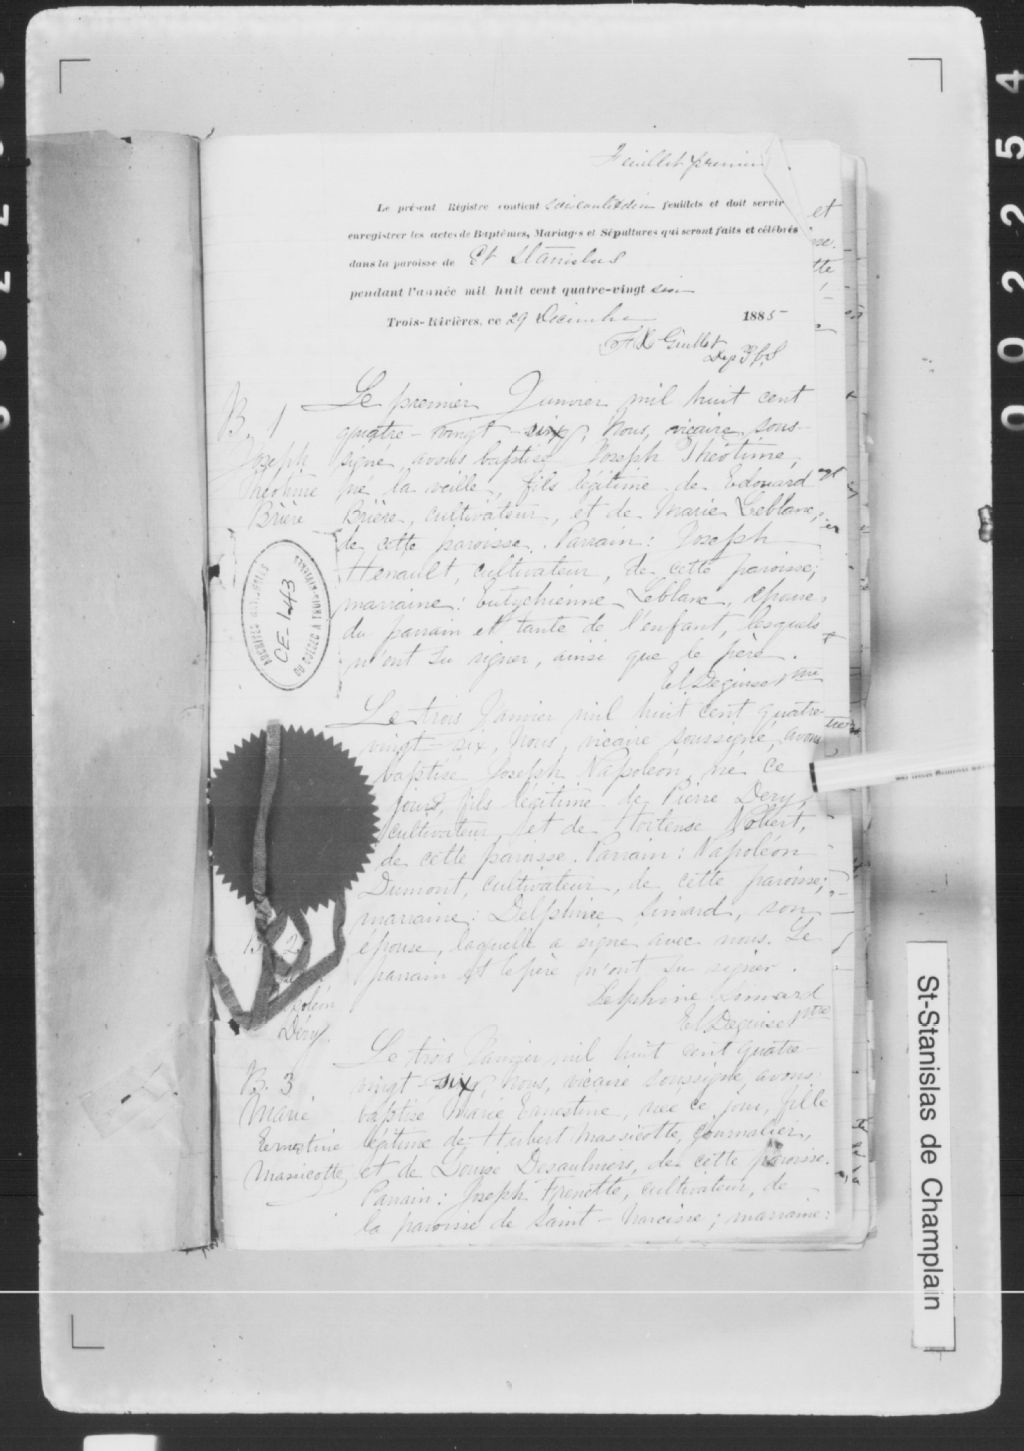 Feuillet premier
Le présent Régistre contient soixante & dix feuillets et doit servir
enregistrer les actes de Baptêmes, Mariages et Sépultures qui seront faits et célébrés
dans la paroisse de St Stanislas
pendant l'année mil huit cent quatre-vingt six
Trois-Rivières, ce 29 Décembre 1885
F X Guillet
Dep P.C.S
B. 1
Joseph
Théotime
Brière
Le premier Janvier mil huit cent
quatre-vingt-six, Nous, vicaire sous-
signé, avons baptisé Joseph Théotime,
né la veille, fils légitime de Edouard
Brière, cultivateur, et de Marie Leblanc,
de cette paroisse. Parrain: Joseph
Henault, cultivateur, de cette paroisse;
marraine: Eutychienne Leblanc, épouse
du parrain et tante de l'enfant, lesquels
n'ont su signer, ainsi que le père.
ARCHIVES NATIONALES
DU QUÉBEC À TROIS-RIVIÈRES
CE-143
Le trois Janvier mil huit cent quatre-
vingt-six, Nous, vicaire soussigné, avons
baptisé Joseph Napoléon, né ce
jour, fils légitime de Pierre Dery,
cultivateur, et de Hortense Nobert,
de cette paroisse. Parrain: Napoléon
Dumont, cultivateur, de cette paroisse;
marraine: Delphine Simard, son
épouse, laquelle a signé avec nous. Le
parrain et le père n'ont su signer.
Delphine Simard
ptre
2
oléon
Déry.
B. 3
Marie
Ernestine
Massicotte
Le trois Janvier mil huit cent quatre-
vingt-six, Nous, vicaire soussigné, avons
baptisé Marie Ernestine, née ce jour, fille
légitime de Hubert Massicotte, journalier,
et de Louise Desaulniers, de cette paroisse.
Parrain: Joseph Frenette, cultivateur, de
la paroisse de Saint-Narcisse; marraine:
St-Stanislas de Champlain